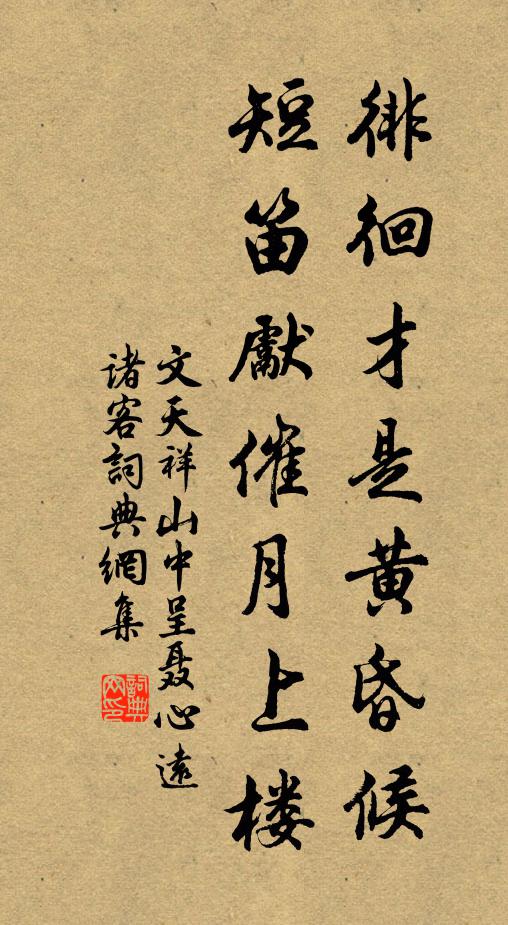 徘徊才是黄昏候
短笛獻催月上楼
文天祥山中呈聂心遠
诸客詞典網集
詞典
网印